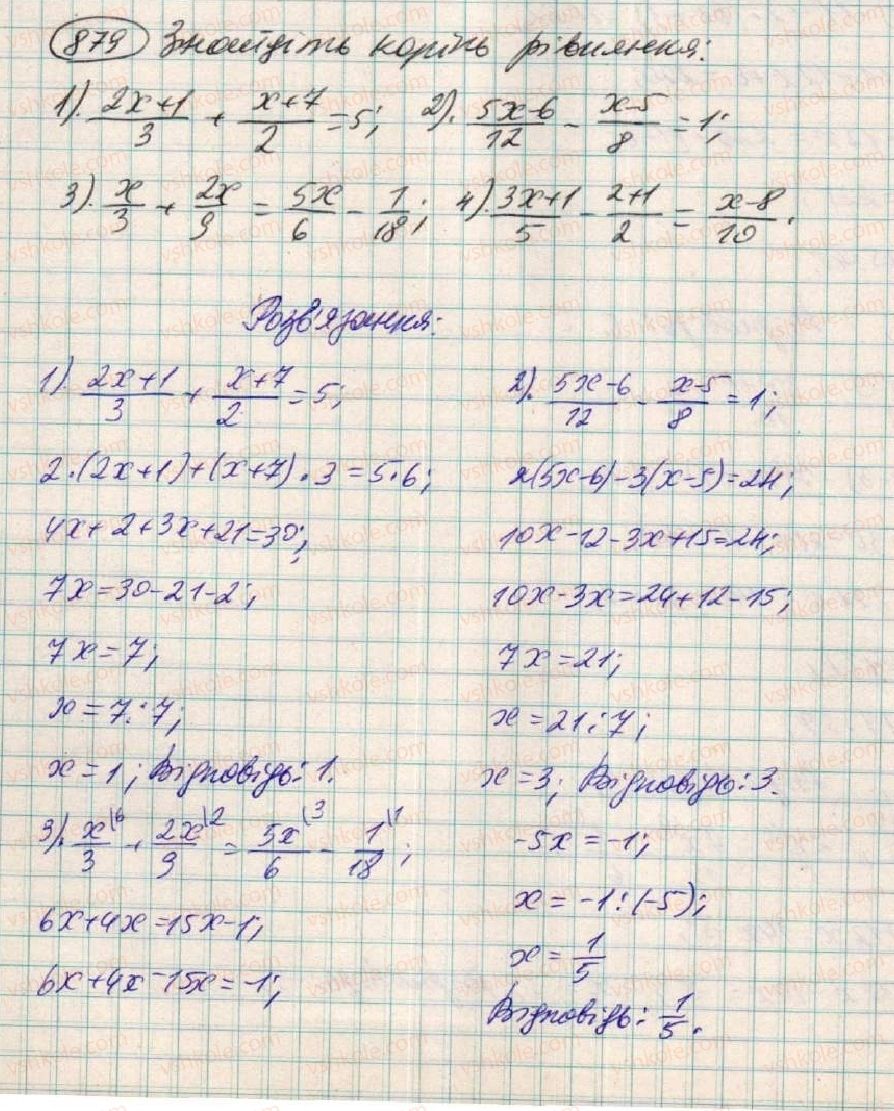 879 Знайдіть корінь рівняння:
1). (2x+1)/3 + (x+7)/2 = 5; 2). (5x-6)/12 - (x-5)/8 = 1;
3). x/3 + 2x/9 = 5x/6 - 1/18; 4). (3x+1)/5 - (2+1)/2 = (x-8)/10.
Розв'язання:
1). (2x+1)/3 + (x+7)/2 = 5;
2·(2x+1)+(x+7)·3=5·6;
4x+2+3x+21=30;
7x=30-21-2;
7x=7;
x=7:7;
x=1; Відповідь: 1.
2). (5x-6)/12 - (x-5)/8 = 1;
2(5x-6)-3(x-5)=24;
10x-12-3x+15=24;
10x-3x=24+12-15;
7x=21;
x=21:7;
x=3; Відповідь: 3.
3). x\6/3 + 2x\2/9 = 5x\3/6 - 1\1/18;
6x+4x=15x-1;
6x+4x-15x=-1;
-5x=-1;
x=-1:(-5);
x=1/5
Відповідь: 1/5.
vshkole.com